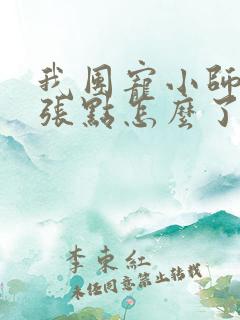 我團寵小師
張點怎麼了
李東紅
未經同意禁止轉載